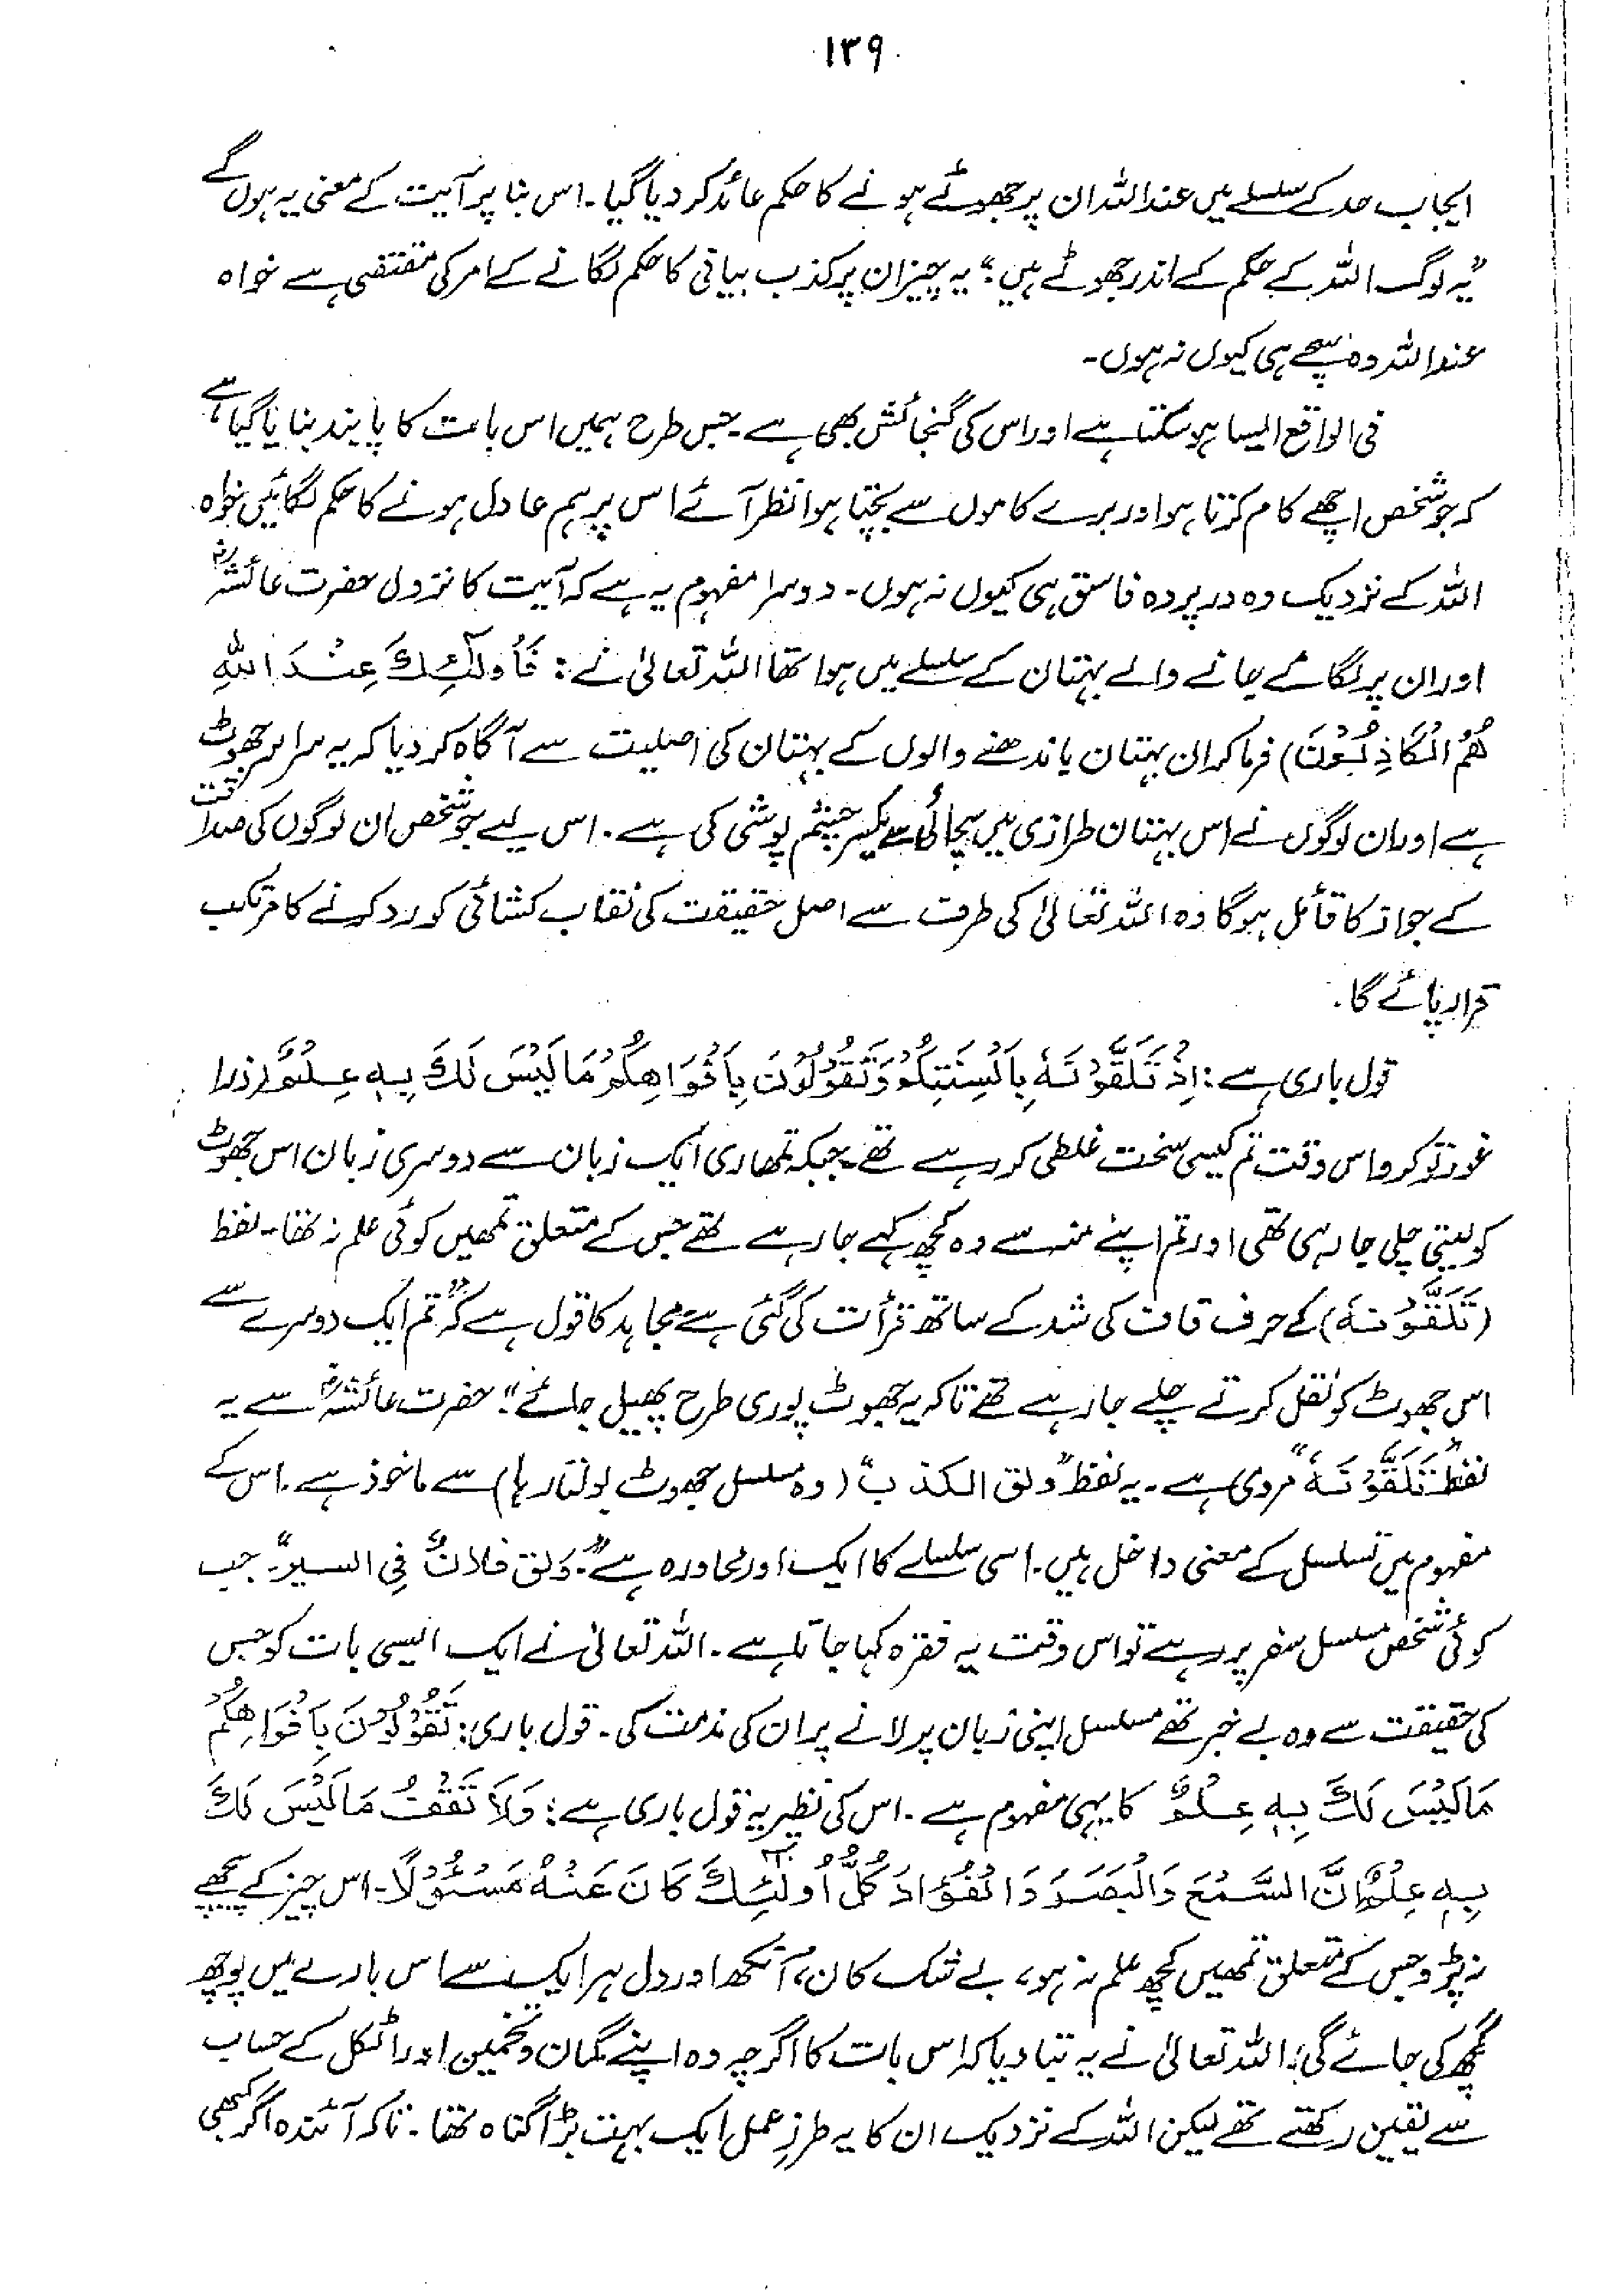 ۱۳۹
ایجاب حد کے سلسلے میں عنداللہ ان پر جھوٹے ہونے کا حکم عائد کر دیا گیا۔ اس بنا پر آیت کے معنی یہ ہوں گے
"یہ لوگ اللہ کے حکم کے اندر جھوٹے ہیں" یہ چیز ان پر کذب بیانی کا حکم لگانے کے امر کی مقتضی ہے خواہ
عنداللہ وہ سچے ہی کیوں نہ ہوں۔
فی الواقع ایسا ہو سکتا ہے اور اس کی گنجائش بھی ہے۔ جس طرح ہمیں اس بات کا پابند بنایا گیا ہے
کہ جو شخص اچھے کام کرتا ہو اور برے کاموں سے بچتا ہوا نظر آئے اس پر ہم عادل ہونے کا حکم لگائیں خواہ
اللہ کے نزدیک وہ درپردہ فاسق ہی کیوں نہ ہوں۔ دوسرا مفہوم یہ ہے کہ آیت کا نزول حضرت عائشہؓ
اور ان پر لگائے جانے والے بہتان کے سلسلے میں ہوا تھا اللہ تعالیٰ نے: فَأُولٰٓئِكَ عِنْدَ اللّٰهِ
هُمُ الْكَاذِبُوْنَ) فرما کر ان بہتان باندھنے والوں کے بہتان کی اصلیت سے آگاہ کر دیا کہ یہ سراسر جھوٹ
ہے اور ان لوگوں نے اس بہتان طرازی میں سچائی سے یکسر چشم پوشی کی ہے۔ اس لیے جو شخص ان لوگوں کی صداقت
کے جواز کا قائل ہوگا وہ اللہ تعالیٰ کی طرف سے اصل حقیقت کی نقاب کشائی کو رد کرنے کا مرتکب
قرار پائے گا۔
قول باری ہے: اِذْ تَلَقَّوْنَهٗ بِاَلْسِنَتِكُمْ وَتَقُوْلُوْنَ بِاَفْوَاهِكُمْ مَا لَيْسَ لَكُمْ بِهٖ عِلْمٌ) ذرا
غور تو کرو اس وقت تم کیسی سخت غلطی کر رہے تھے جبکہ تمھاری ایک زبان سے دوسری زبان اس جھوٹ
کو لیتی چلی جا رہی تھی اور تم اپنے منہ سے وہ کچھ کہے جا رہے تھے جس کے متعلق تمھیں کوئی علم نہ تھا۔ لفظ
(تَلَقَّوْنَهٗ) کے حرف قاف کی شد کے ساتھ قرأت کی گئی ہے مجاہد کا قول ہے کہ "تم ایک دوسرے سے
اس جھوٹ کو نقل کرتے چلے جا رہے تھے تاکہ یہ جھوٹ پوری طرح پھیل جائے" حضرت عائشہؓ سے یہ
لفظ "تَلَقَّوْنَهٗ" مروی ہے۔ یہ لفظ "ولق الکذب" (وہ مسلسل جھوٹ بولتا رہا) سے ماخوذ ہے۔ اس کے
مفہوم میں تسلسل کے معنی داخل ہیں۔ اسی سلسلے کا ایک اور محاورہ ہے "وَلق فلانٌ فِی السیر" جب
کوئی شخص مسلسل سفر پر رہے تو اس وقت یہ فقرہ کہا جاتا ہے۔ اللہ تعالیٰ نے ایک ایسی بات کو جس
کی حقیقت سے وہ بے خبر تھے مسلسل اپنی زبان پر لانے پر ان کی مذمت کی۔ قول باری: تَقُوْلُوْنَ بِاَفْوَاهِكُمْ
مَا لَيْسَ لَكُمْ بِهٖ عِلْمٌ کا یہی مفہوم ہے۔ اس کی نظیر یہ قول باری ہے: وَلَا تَقْفُ مَا لَيْسَ لَكَ
بِهٖ عِلْمٌ اِنَّ السَّمْعَ وَالْبَصَرَ وَالْفُؤَادَ كُلُّ اُولٰٓئِكَ كَانَ عَنْهُ مَسْئُوْلًا۔ اس چیز کے پیچھے
نہ پڑو جس کے متعلق تمھیں کچھ علم نہ ہو، بے شک کان، آنکھ اور دل ہر ایک سے اس بارے میں پوچھ
گچھ کی جائے گی: اللہ تعالیٰ نے یہ بتا دیا کہ اس بات کا اگرچہ وہ اپنے گمان و تخمین اور اٹکل کے حساب
سے یقین رکھتے تھے لیکن اللہ کے نزدیک ان کا یہ طرزِ عمل ایک بہت بڑا گناہ تھا۔ تاکہ آئندہ اگر کبھی